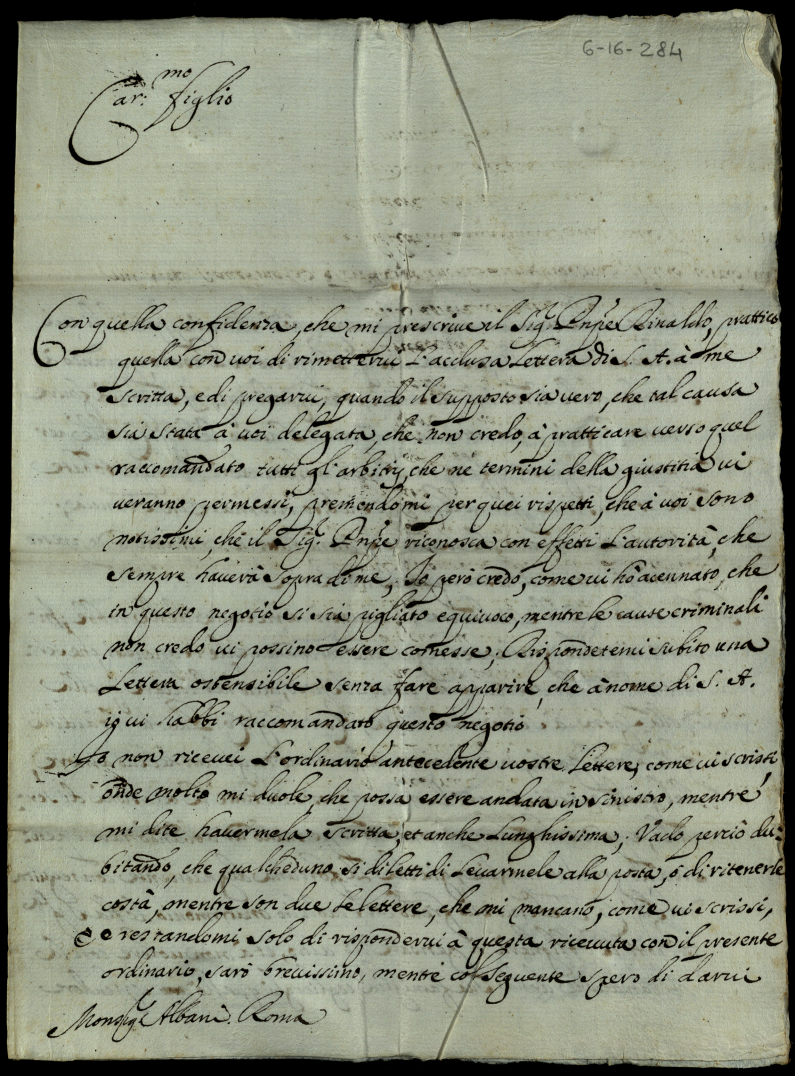 6-16-284
Car:mo figlio
Con quella confidenza, che mi prescrive il Sig.r Pnpe Rinaldo, prattico
quella con voi di rimettervi l'acclusa lettera di S. A. à me
scritta, e di pregarvi, quando il supposto sia vero, che tal causa
sia stata à voi delegata, che non credo, à pratticare verso quel
raccomandato tutti gl'arbitrij, che ne termini della giustitia vi
veranno permessi, premendomi per quei rispetti, che à voi sono
notissimi, che il Sig.r Pnpe riconosca con effetti l'autorità, che
sempre haverà sopra di me; Io però credo, come vi hò acennato, che
in questo negotio si sia pigliato equivoco, mentre le cause criminali
non credo vi possino essere comesse; Rispondetemi subito una
lettera ostensibile senza fare apparire, che à nome di S. A.
io vi habbi raccomandato questo negotio
Io non ricevei l'ordinario antecedente vostre lettere, come vi scrissi,
onde molto mi duole, che possa essere andata in sinistro, mentre
mi dite havermela scritta, et anche lunghissima; Vado perciò du-
bitando, che qualcheduno si diletti di levarmele alla posta, ò di ritenerle
costà, mentre son due le lettere, che mi mancano, come vi scrissi,
e restandomi solo di rispondervi à questa ricevuta con il presente
ordinario, sarò brevissimo, mentre col seguente spero di darvi
Monsig.r Albani. Roma